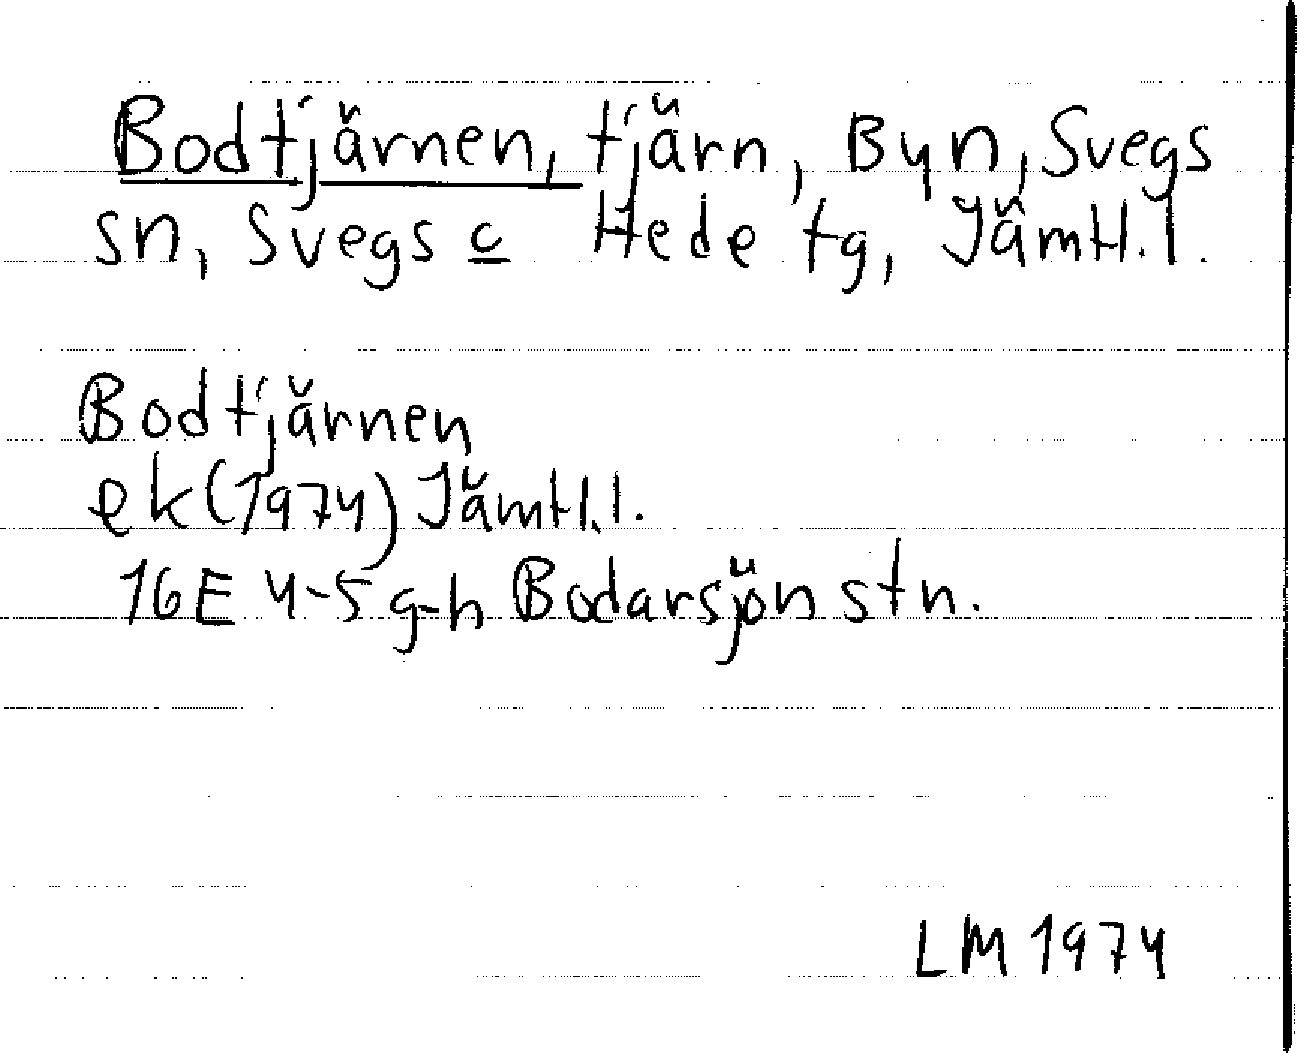 Bodtjärnen, tjärn, Byn, Svegs
sn, Svegs c Hede tg, Jämtl. l.
Bodtjärnen
ek (1974) Jämtl. l.
16E 4-5 g-h Bodarsjön stn.
LM 1974